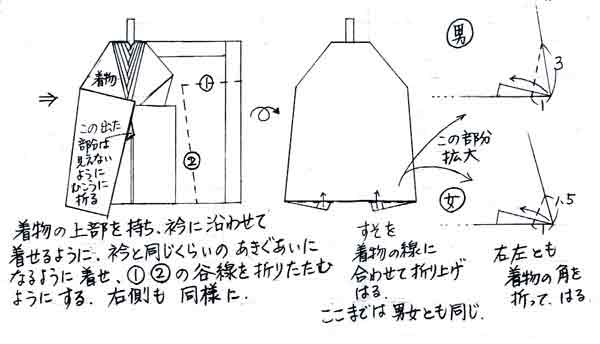 着物
①
②
この出た
部分は
見えない
ように
むこうに
折る
着物の上部を持ち、衿に沿わせて
着せるように、衿と同じくらいのあきぐあいに
なるように着せ、①②の谷線を折りたたむ
ようにする。右側も同様に。
すそを
着物の線に
合わせて折り上げ
はる。
ここまでは男女とも同じ.
この部分
拡大
男
3
1
女
1.5
1
右左とも
着物の角を
折って、はる。